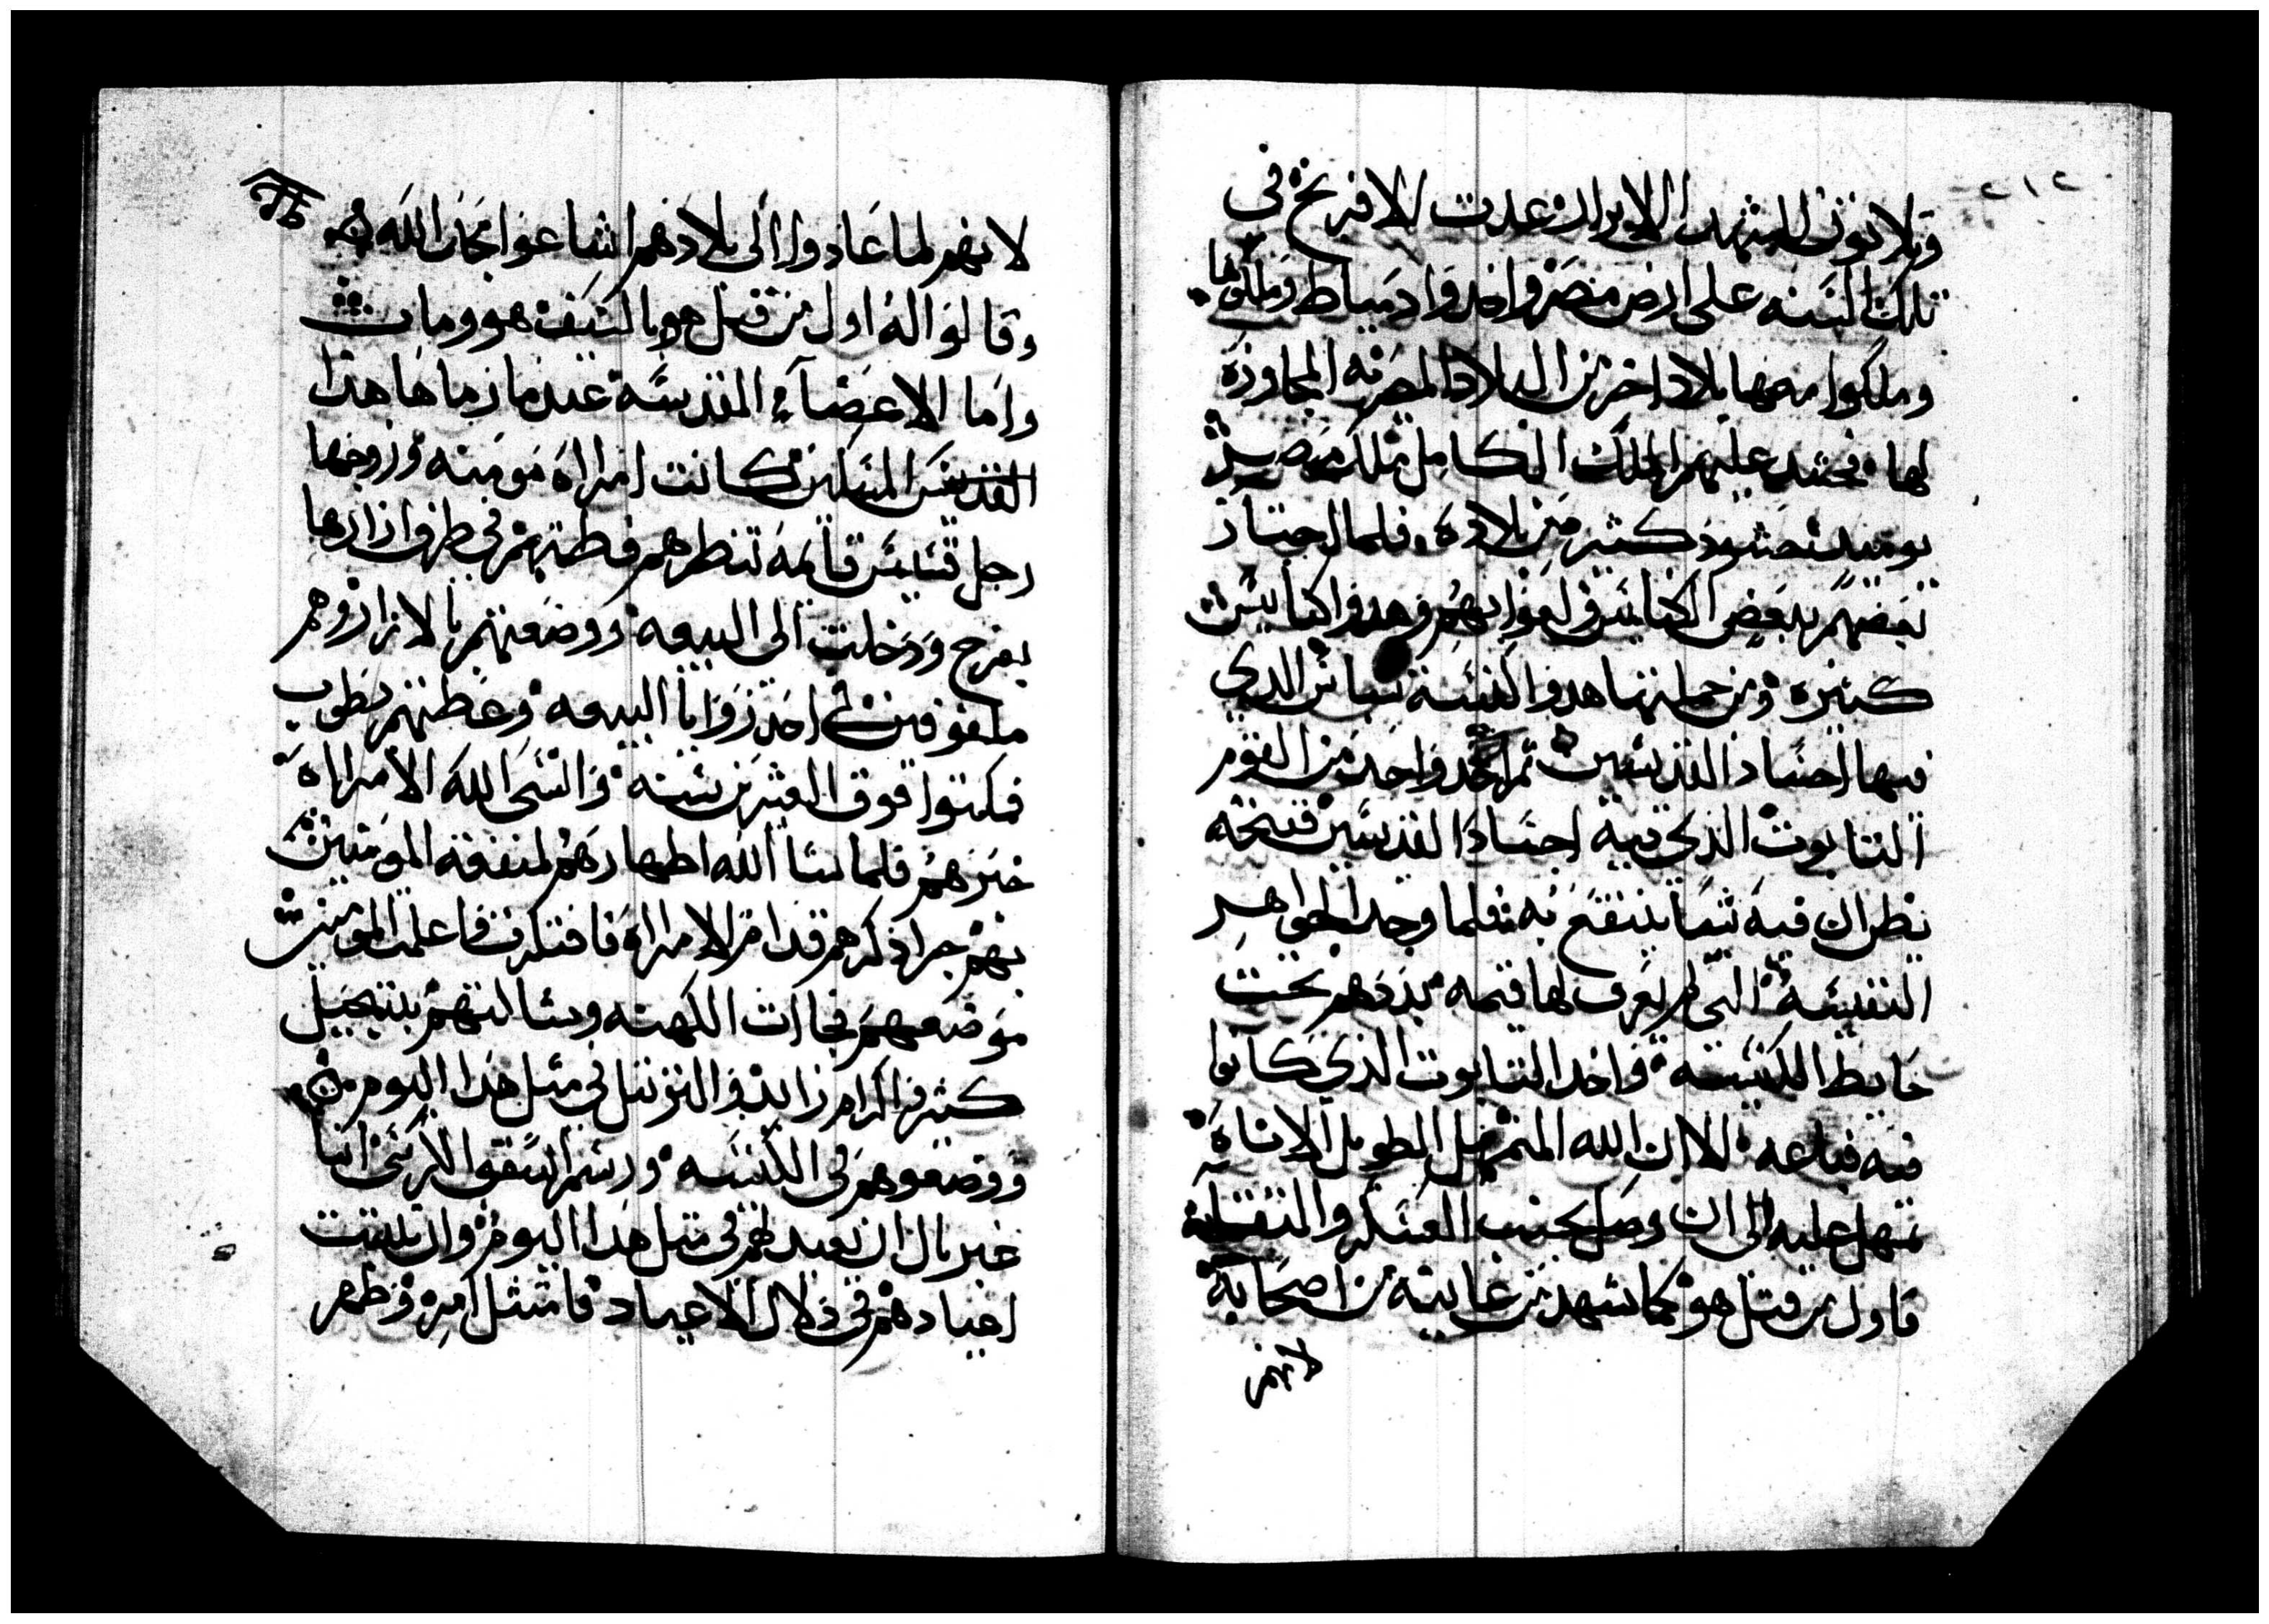 ٢١٢
وثلاثون للشهدا الابرار عدت الافرنج في
تلك السنه على ارض مصر واخدوا دمياط وملكوها
وملكوا معها بلاد اخر من البلاد المصريه المجاورة
لها فحشد عليهم الملك الكامل ملك مصر
يوميد حشود كثير من بلاده فلما اجتاز
بعضهم ببعض الكنايس ولعوا بهم وهدوا كنايس
كثيره ومن جملتها هدوا كنيسة التي
فيها اجساد القديسين ثم اخد واحد من القوم
التابوت الذي فيه اجساد القديسين فتحه
يظن ان فيه شيا ينتفع به فلما وجد الجواهر
النفيسه التي لم يعرف لها قيمه بددهم تحت
حايط الكنيسه واخد التابوت الذي كانوا
فيه فباعه الا ان الله المتمهل الطويل الاناة
تمهل عليه الى ان وصل بجنب العسكر والتقى
فاول من قتل هو كما شهد من عاينه من اصحابه
لانهم
لانهم لما عادوا الى بلادهم اشاعوا مجد الله
وقالوا انه اول من قتل هو بالسيف هو ومات
واما الاعضاء المقدسة عندما رماها هذا
القديس المسكين كانت امراة مومنه وزوجها
رجل قسيس قايمه تنظرهم فطمرتهم في طرف ازارها
بفرح ودخلت الى البيعه ووضعتهم بالازار وهم
ملفوفين في احد زوايا البيعه وغطتهم بطوب
فمكثوا فوق العشرين سنه وانسى الله الامراة
خبرهم فلما شا الله اظهارهم لمنفعة المومنين
بهم جرا ذكرهم قدام الامراة فافتكرت فاعلمت المومنين
موضعهم فجاات الكهنه وشالتهم بتبجيل
كثير واكرام زايد والتزتيل في مثل هذا اليوم
ووضعوهم في الكنيسه ورسم الاسقف الاركسي انبا
غبريال ان تعيد لهم في مثل هذا اليوم وان تلتفت
اعيادهم في خلال الاعياد فامتثل امره وظهر